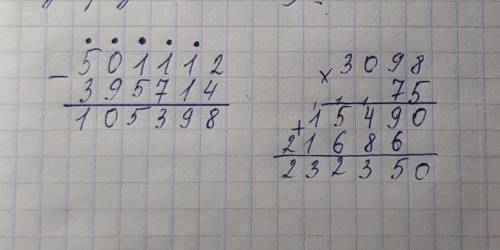 501112
− 395714
105398
× 3098
75
+ 15490
21686
232350